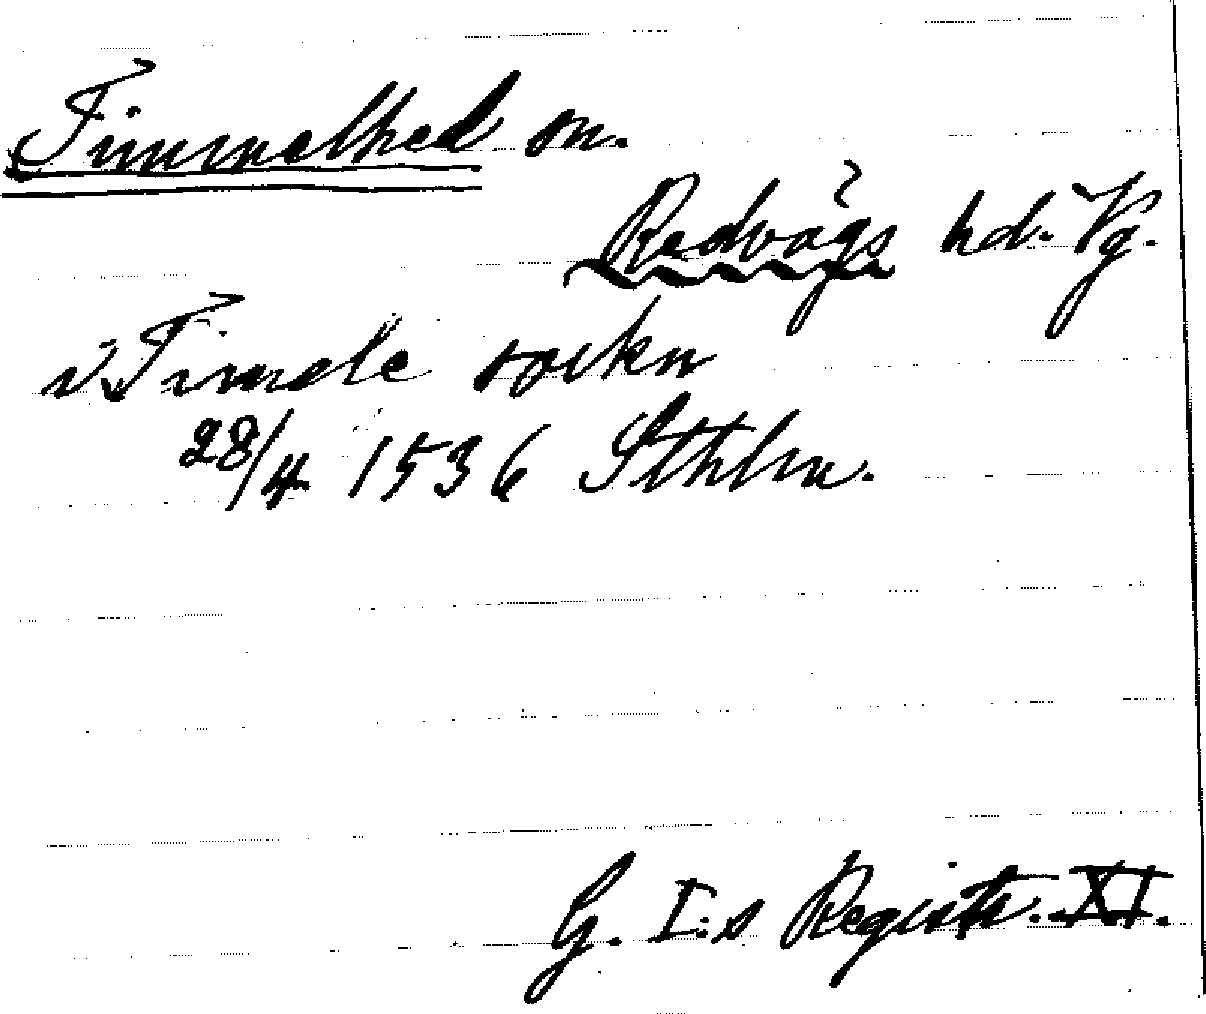 Timmelhed sn.
Redvägs hd. Vg.
i Timele sockn
28/4 1536 Sthlm.
G. I:s Registr. XI.